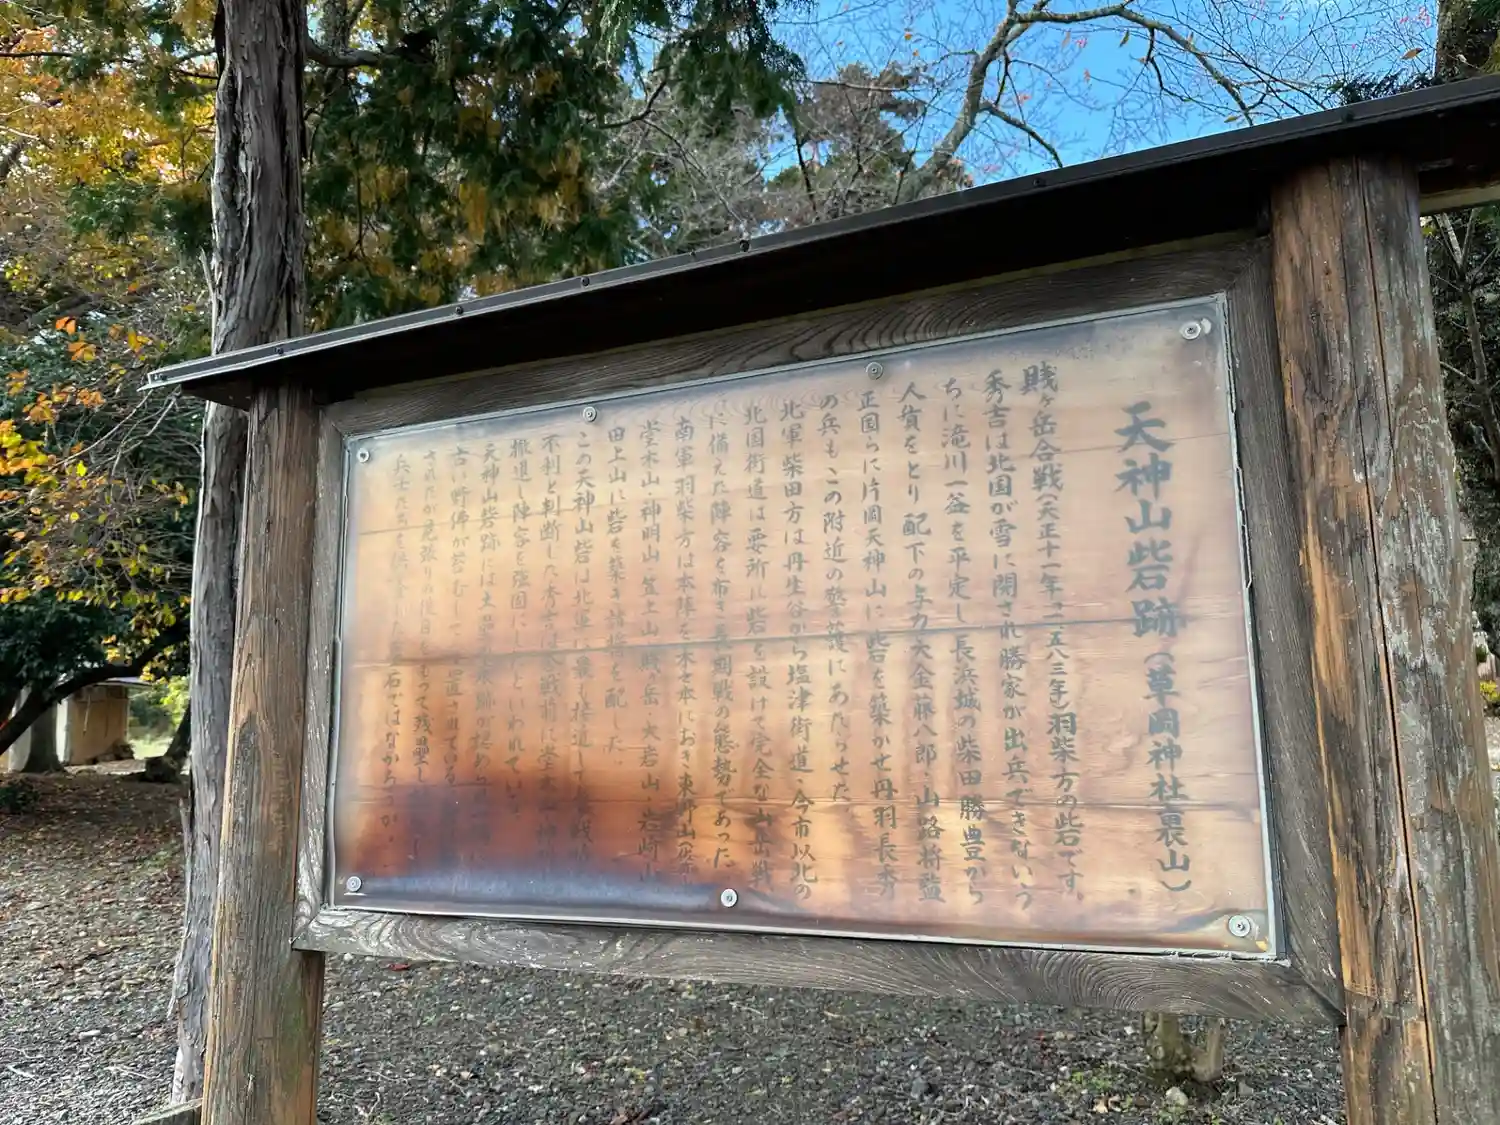 天神山砦跡(草岡神社裏山)
賤ヶ岳合戦(天正十一年・一、五八三年)羽柴方の砦です。
秀吉は北国が雪に閉され勝家が出兵できないう
ちに滝川一益を平定し長浜城の柴田勝豊から
人質をとり配下の与力大金藤八郎・山路将監
正国らに片岡天神山に砦を築かせ丹羽長秀
の兵もこの附近の警護にあたらせた。
北軍柴田方は丹生谷から塩津街道、今市以北の
北国街道は要所に砦を設けて完全な山岳戦
に備えた陣容を布き長期戦の態勢であった
南軍羽柴方は本陣を木之本におき東野山
堂木山・神明山・笠土山・賤ヶ岳・大岩山・岩崎山
田上山に砦を築き諸将を配した。
この天神山砦は北軍に最も接近して
不利と判断した秀吉は合戦前に堂木
撤退し陣容を強固にしたといわれている
天神山砦跡には土塁
古い野佛が苔むして 置されている
されたか見張りの役目をもって残置し
兵士たちを 石ではなかろうか。